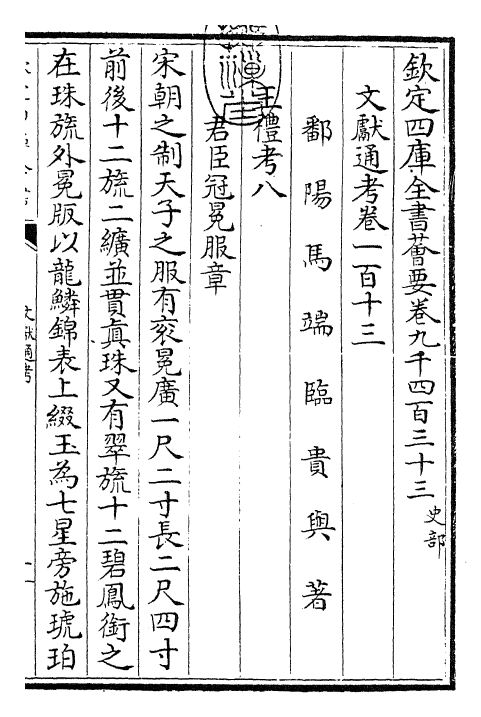 欽定四庫全書薈要卷九千四百三十三 史部
文獻通考卷一百十三
鄱陽馬端臨貴與著
王禮考八
君臣冠冕服章
宋朝之制天子之服有衮冕廣一尺二寸長二尺四寸
前後十二旒二纊並貫真珠又有翠旒十二碧鳳銜之
在珠旒外冕版以龍鱗錦表上綴玉為七星旁施琥珀
文獻通考